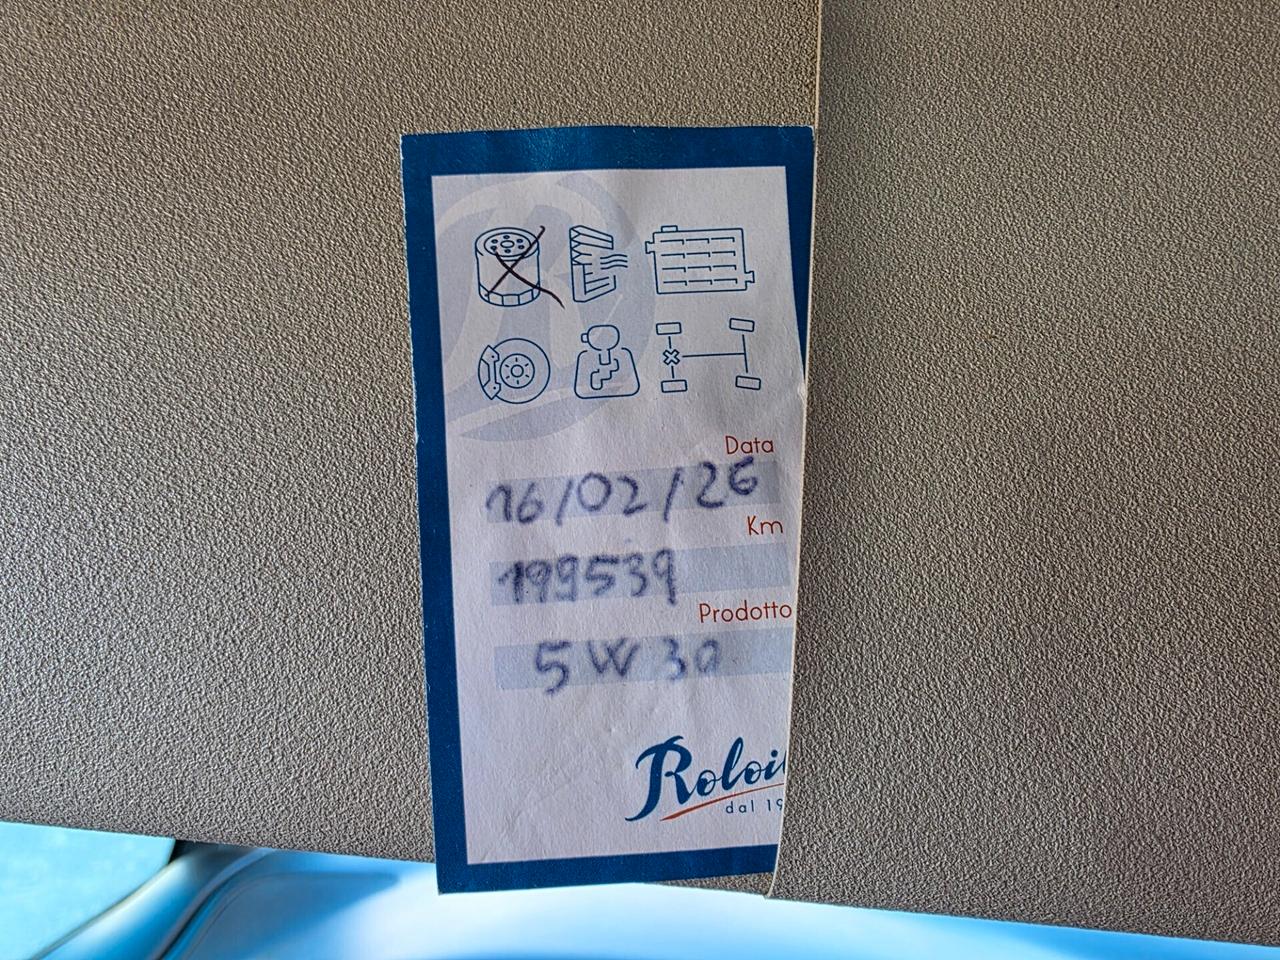 Data
16/02/26
Km
199539
Prodotto
5W30
Roloil
dal 19